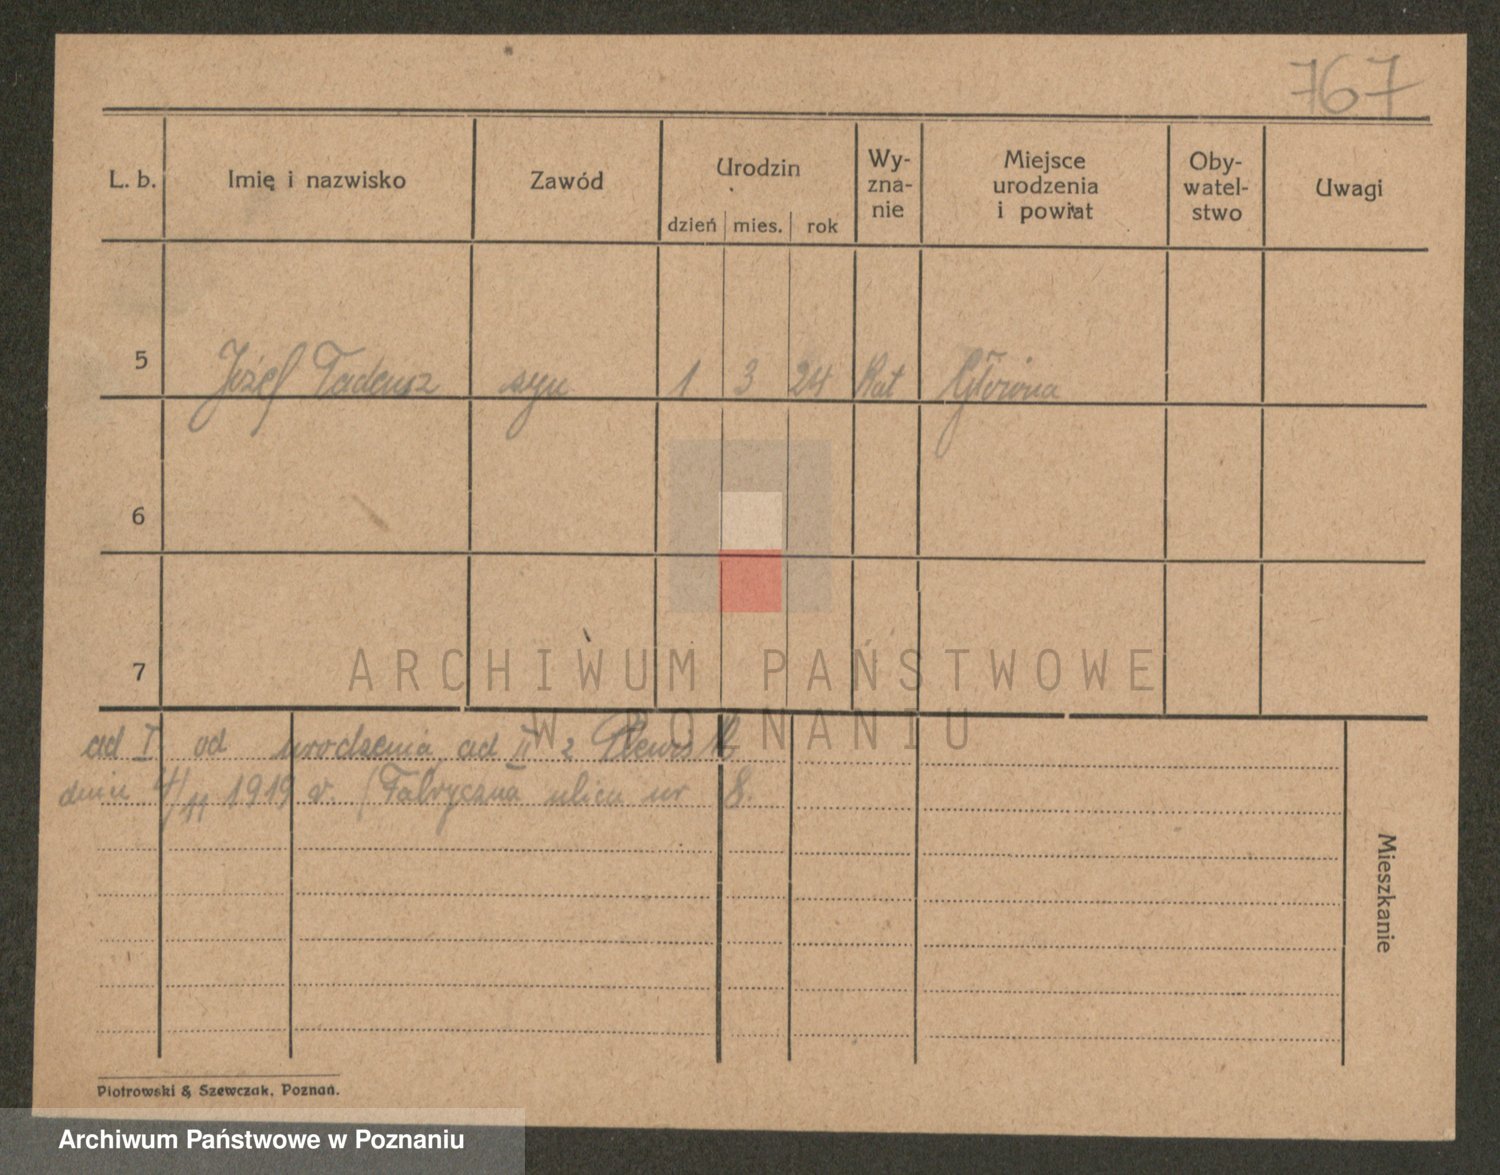 767
L. b. Imię i nazwisko Zawód Urodzin Wy-
zna-
nie Miejsce
urodzenia
i powiat Oby-
watel-
stwo Uwagi
dzień mies. rok
5 Józef Tadeusz syn 1 3 24 Kat Główna
6
7
ARCHIWUM PAŃSTWOWE
W POZNANIU
ad I od urodzenia, ad II z
dnia 4/11 1919 r. (Fabryczna ulica nr 8.
Mieszkanie
Piotrowski & Szewczak, Poznań.
Archiwum Państwowe w Poznaniu